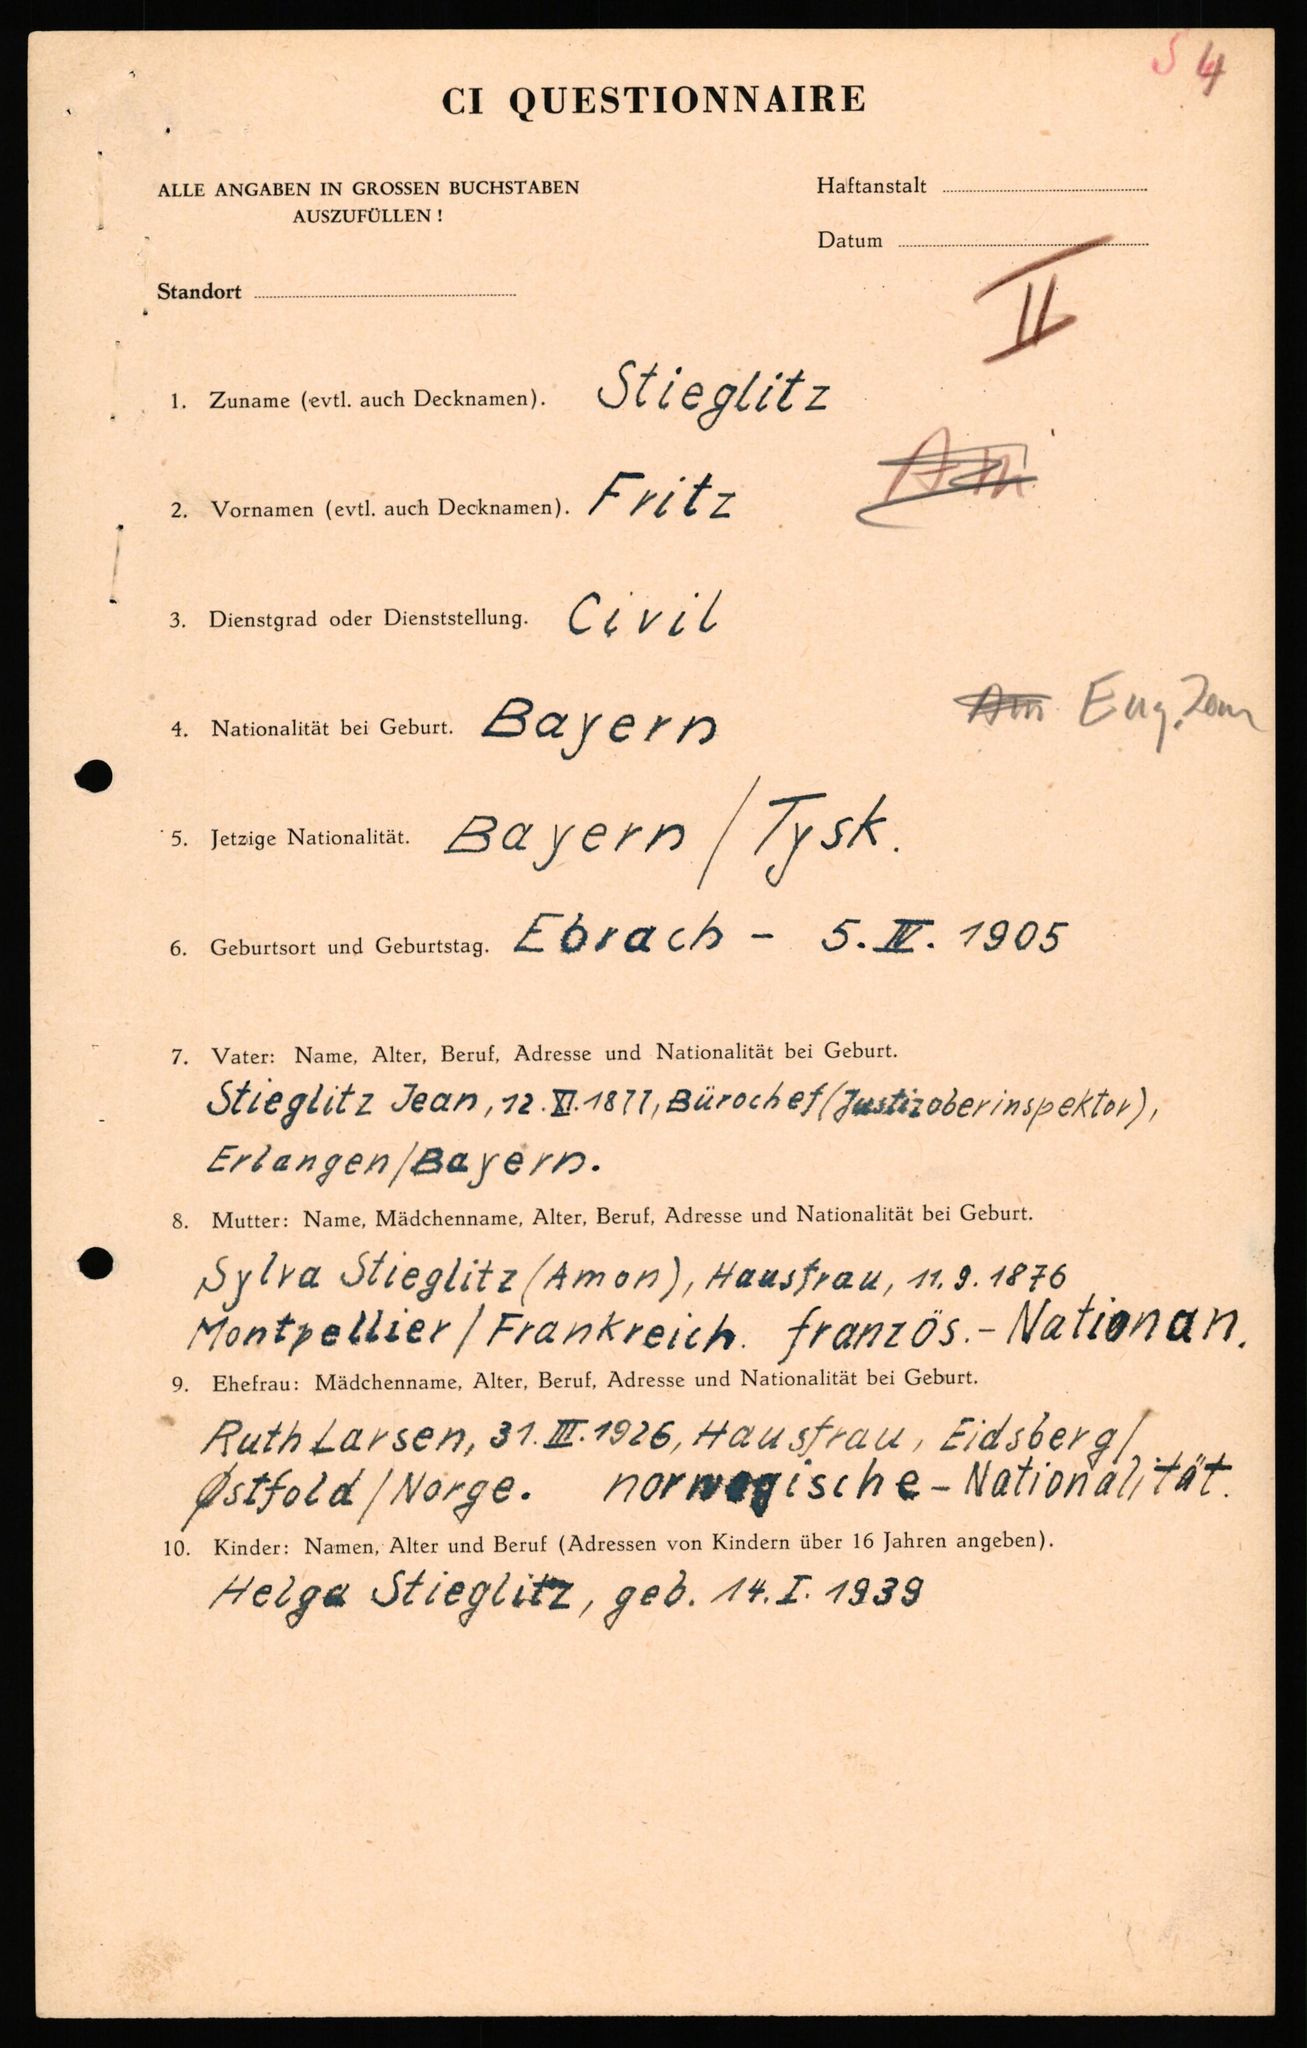 S 4
CI QUESTIONNAIRE
ALLE ANGABEN IN GROSSEN BUCHSTABEN
AUSZUFÜLLEN !
Haftanstalt
Datum
Standort
II
1. Zuname (evtl. auch Decknamen). Stieglitz
2. Vornamen (evtl. auch Decknamen). Fritz
3. Dienstgrad oder Dienststellung. Civil
4. Nationalität bei Geburt. Bayern
Eng. Zone
5. Jetzige Nationalität. Bayern / Tysk.
6. Geburtsort und Geburtstag. Ebrach - 5. IV. 1905
7. Vater: Name, Alter, Beruf, Adresse und Nationalität bei Geburt.
Stieglitz Jean, 12. XI. 1877, Bürochef (Justizoberinspektor),
Erlangen/Bayern.
8. Mutter: Name, Mädchenname, Alter, Beruf, Adresse und Nationalität bei Geburt.
Sylva Stieglitz (Amon), Hausfrau, 11. 9. 1876
Montpellier/Frankreich. französ. - Nationan.
9. Ehefrau: Mädchenname, Alter, Beruf, Adresse und Nationalität bei Geburt.
Ruth Larsen, 31. III. 1926, Hausfrau, Eidsberg/
Østfold/Norge. norwegische - Nationalität.
10. Kinder: Namen, Alter und Beruf (Adressen von Kindern über 16 Jahren angeben).
Helga Stieglitz, geb. 14. I. 1939